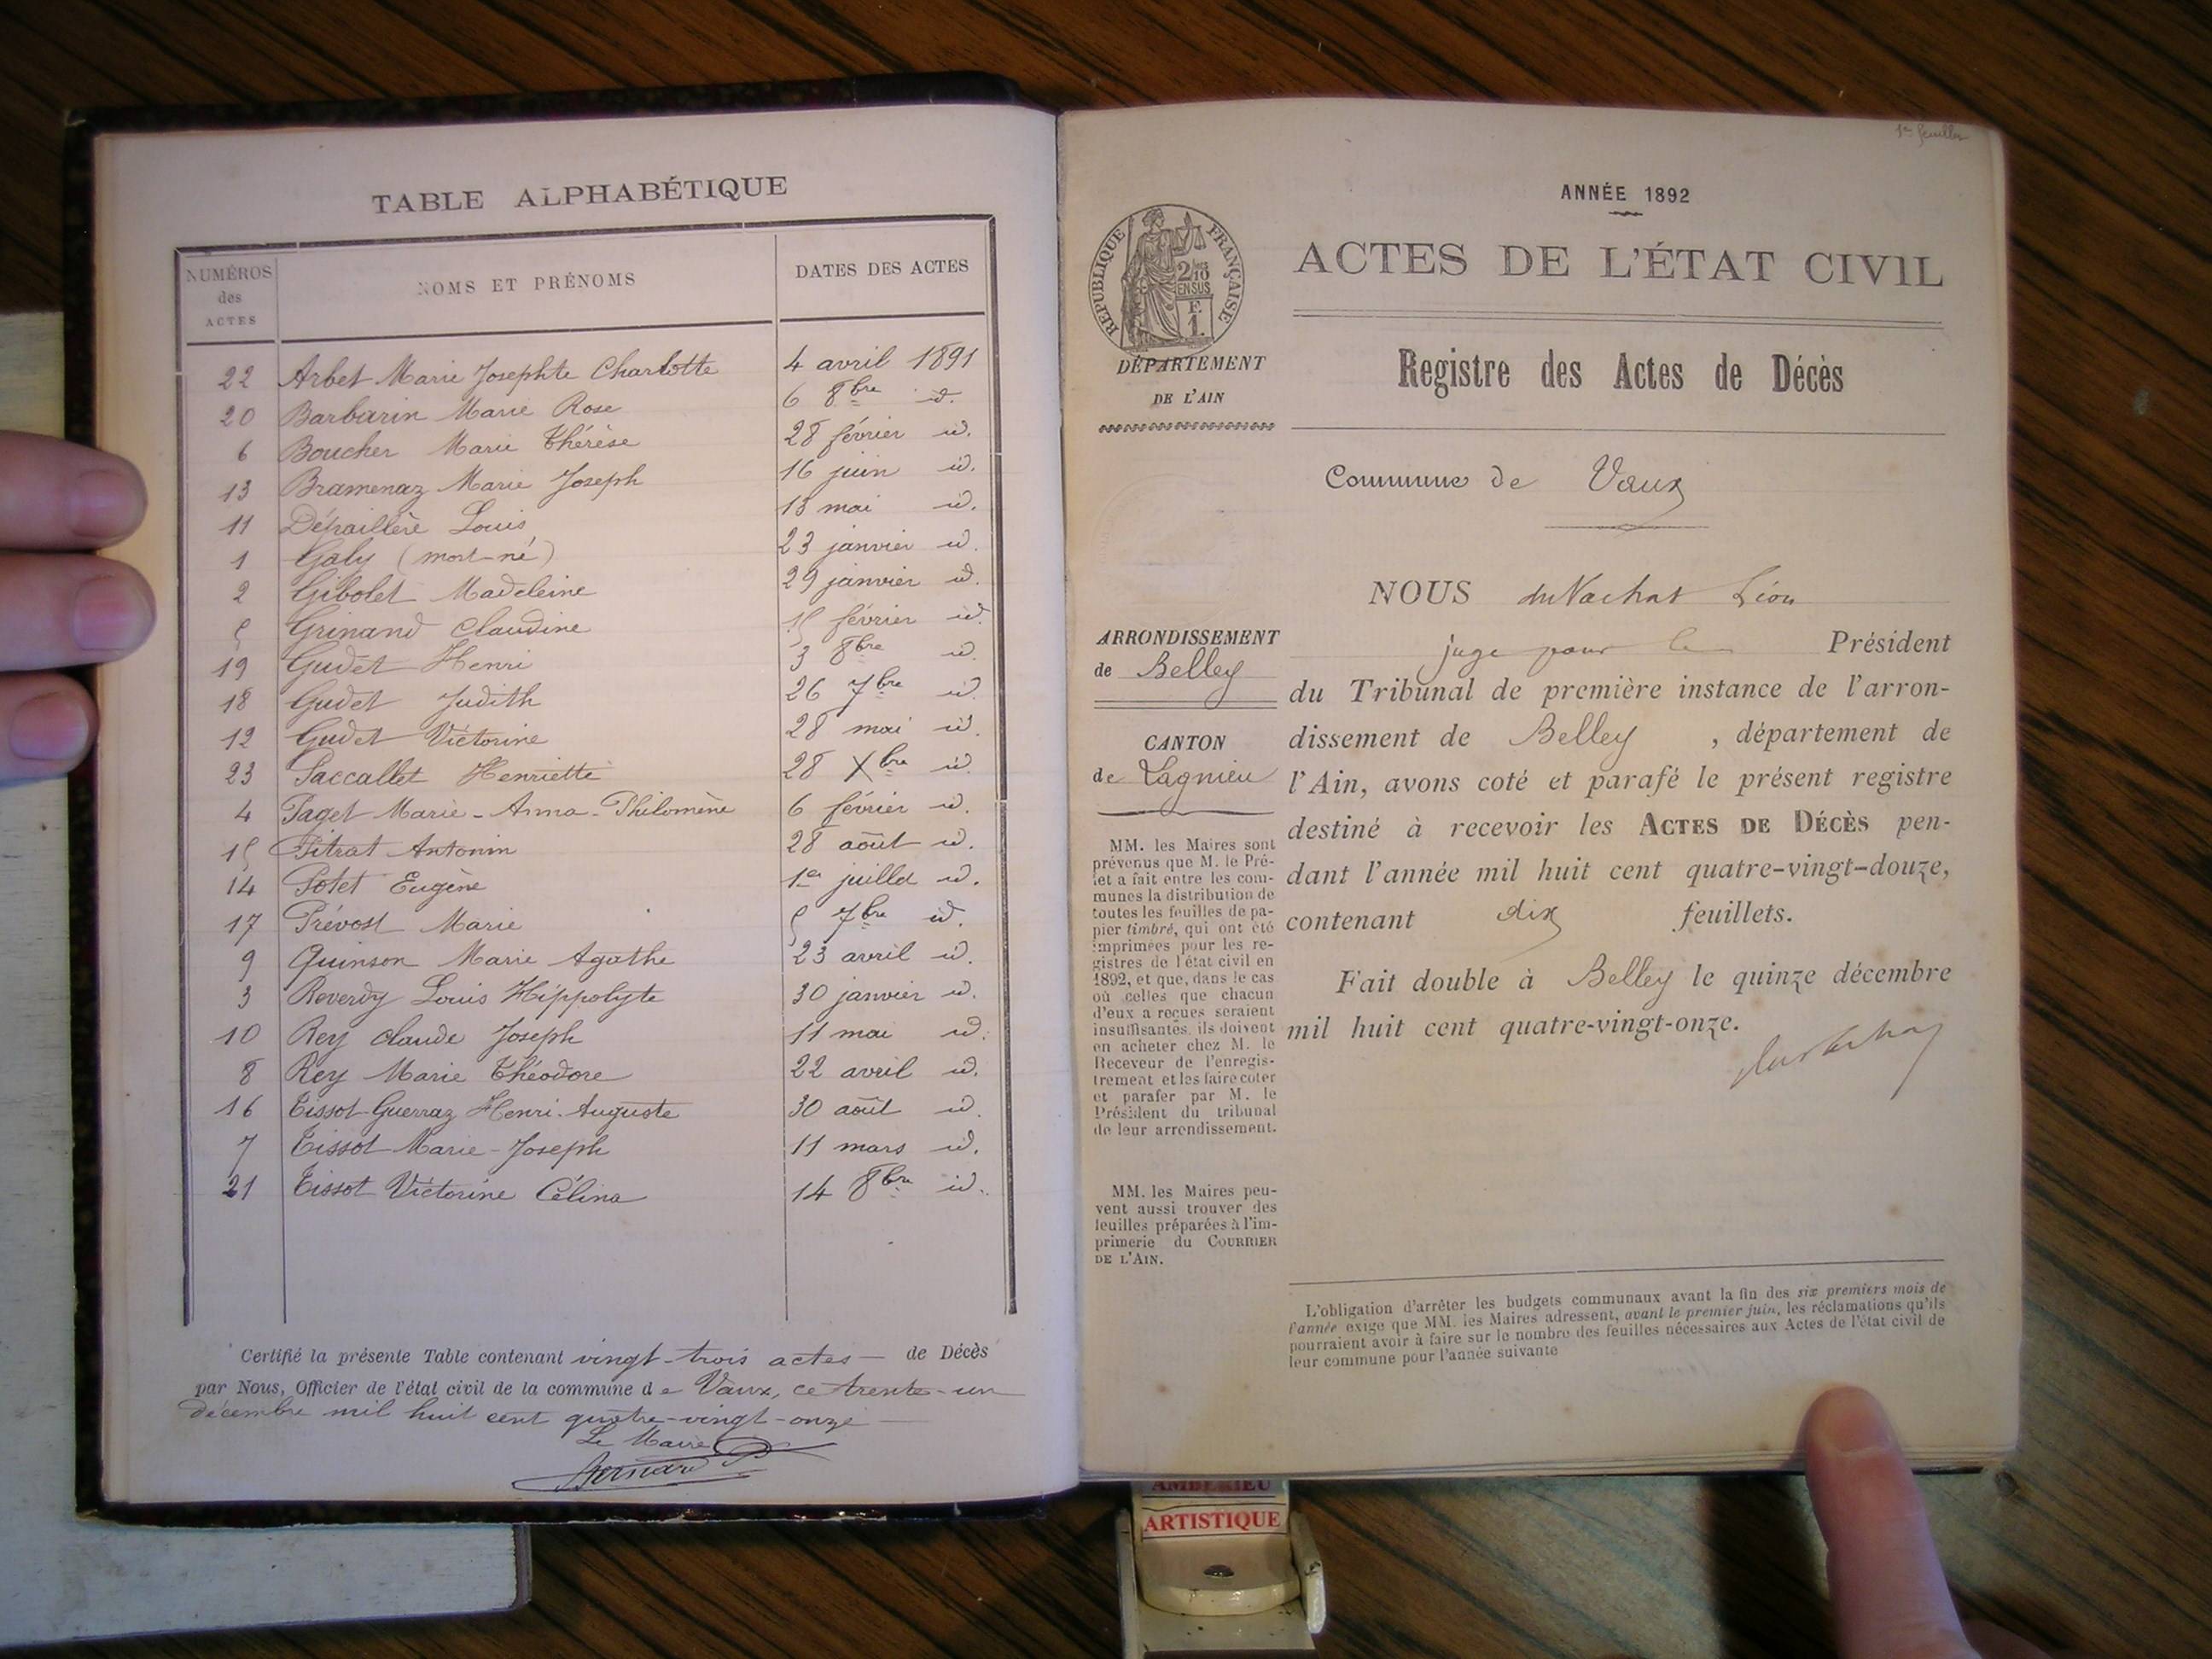 TABLE ALPHABÉTIQUE
NUMÉROS
des
ACTES
NOMS ET PRÉNOMS
DATES DES ACTES
22 Arbet Marie Josephte Charlotte 4 avril 1891
20 Barbarin Marie Rose 6 8bre id.
6 Boucher Marie Thérèse 28 février id.
13 Bramenaz Marie Joseph 16 juin id.
11 Louis 18 mai id.
1 Galy (mort-né) 23 janvier id.
2 Gibolet Madeleine 29 janvier id.
5 Grinand Claudine 15 février id.
19 Gudet Henri 3 8bre id.
18 Gudet Judith 26 7bre id.
12 Gudet Victorine 28 mai id.
23 Paccallet Henriette 28 Xbre id.
4 Paget Marie-Anna-Philomène 6 février id.
15 Pitrat Antonin 28 août id.
14 Potet Eugène 1er juillet id.
17 Prévost Marie 5 7bre id.
9 Quinson Marie Agathe 23 avril id.
3 Reverdy Louis Hippolyte 30 janvier id.
10 Rey Claude Joseph 11 mai id.
8 Rey Marie Théodore 22 avril id.
16 Tissot-Guerraz Henri-Auguste 30 août id.
7 Tissot Marie-Joseph 11 mars id.
21 Tissot Victorine Célina 14 8bre id.
Certifié la présente Table contenant vingt-trois actes — de Décès
par Nous, Officier de l'état civil de la commune de Vaux, ce trente-un
décembre mil huit cent quatre-vingt-onze —
Le Maire
Bernard
1er feuillet
ANNÉE 1892
RÉPUBLIQUE FRANÇAISE
2/10
EN SUS
E
1.
ACTES DE L'ÉTAT CIVIL
DÉPARTEMENT
DE L'AIN
Registre des Actes de Décès
Commune de Vaux
ARRONDISSEMENT
de Belley
CANTON
de Lagnieu
MM. les Maires sont
prévenus que M. le Pré-
fet a fait entre les com-
munes la distribution de
toutes les feuilles de pa-
pier timbré, qui ont été
imprimées pour les re-
gistres de l'état civil en
1892, et que, dans le cas
où celles que chacun
d'eux a reçues seraient
insuffisantes, ils doivent
en acheter chez M. le
Receveur de l'enregis-
trement et les faire coter
et parafer par M. le
Président du tribunal
de leur arrondissement.
MM. les Maires peu-
vent aussi trouver des
feuilles préparées à l'im-
primerie du COURRIER
DE L'AIN.
NOUS du Vachat Léon
juge pour le Président
du Tribunal de première instance de l'arron-
dissement de Belley , département de
l'Ain, avons coté et parafé le présent registre
destiné à recevoir les ACTES DE DÉCÈS pen-
dant l'année mil huit cent quatre-vingt-douze,
contenant dix feuillets.
Fait double à Belley le quinze décembre
mil huit cent quatre-vingt-onze.
L'obligation d'arrêter les budgets communaux avant la fin des six premiers mois de
l'année exige que MM. les Maires adressent, avant le premier juin, les réclamations qu'ils
pourraient avoir à faire sur le nombre des feuilles nécessaires aux Actes de l'état civil de
leur commune pour l'année suivante
AMBÉRIEU
ARTISTIQUE